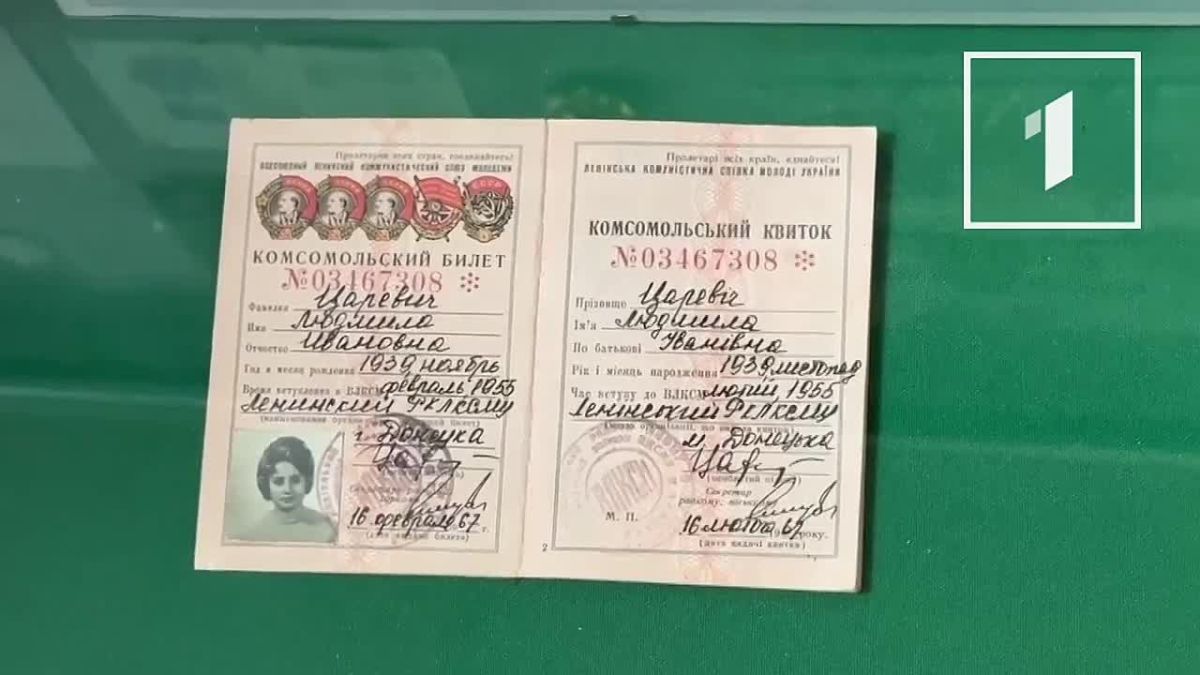 Пролетарии всех стран, соединяйтесь!
ВСЕСОЮЗНЫЙ ЛЕНИНСКИЙ КОММУНИСТИЧЕСКИЙ СОЮЗ МОЛОДЕЖИ
КОМСОМОЛЬСКИЙ БИЛЕТ
№03467308
Фамилия Царевич
Имя Людмила
Отчество Ивановна
Год и месяц рождения 1939 ноябрь
Время вступления в ВЛКСМ февраль 1955
Ленинский РКЛКСМУ
г. Донецка
16 февраля 67 г.
(дата выдачи билета)
Пролетарі всіх країн, єднайтеся!
ЛЕНІНСЬКА КОМУНІСТИЧНА СПІЛКА МОЛОДІ УКРАЇНИ
КОМСОМОЛЬСЬКИЙ КВИТОК
№03467308
Прізвище Царевіч
Ім'я Людмила
По батькові Іванівна
Рік і місяць народження 1939 листопад
Час вступу до ВЛКСМ лютий 1955
Ленінський РКЛКСМУ
м. Донецька
(особистий підпис)
Секретар
М. П.
16 лютого 1967 року.
(дата видачі квитка)
2
1